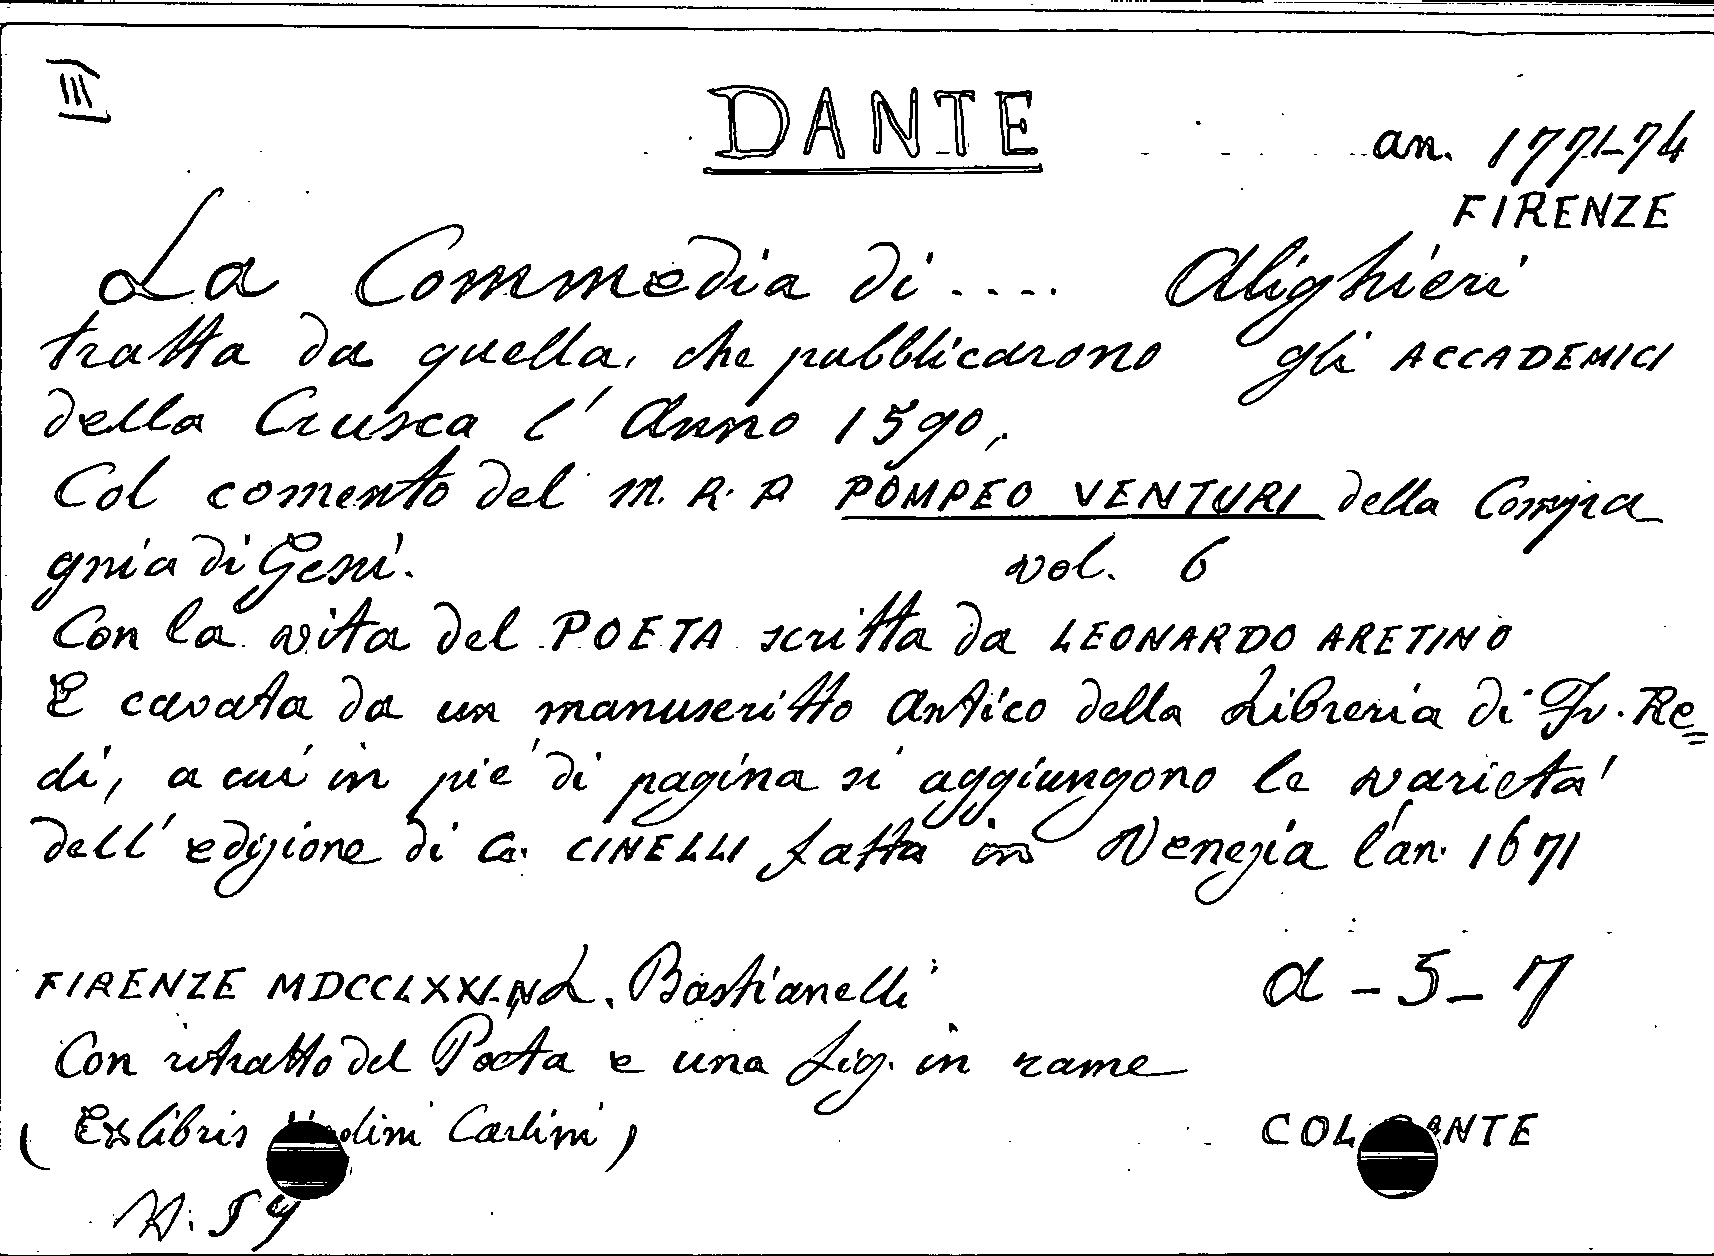 III
DANTE
an. 1771-74
FIRENZE
La Commedia di .... Alighieri
tratta da quella, che pubblicarono gli ACCADEMICI
della Crusca l' Anno 1590,
Col comento del M. R. P POMPEO VENTURI della Compa
gnia di Gesú.
vol. 6
Con la vita del POETA scritta da LEONARDO ARETINO
E cavata da un manuscritto antico della Libreria di Fr. Re=
di, a cui in pie' di pagina si aggiungono le varieta'
dell' edizione di G. CINELLI fatta in Venezia l'an. 1671
FIRENZE L. Bastianelli
a - 5 - 7
Con ritratto del Poeta e una fig. in rame
(Exlibris Carlini)
COL DANTE
N. 59